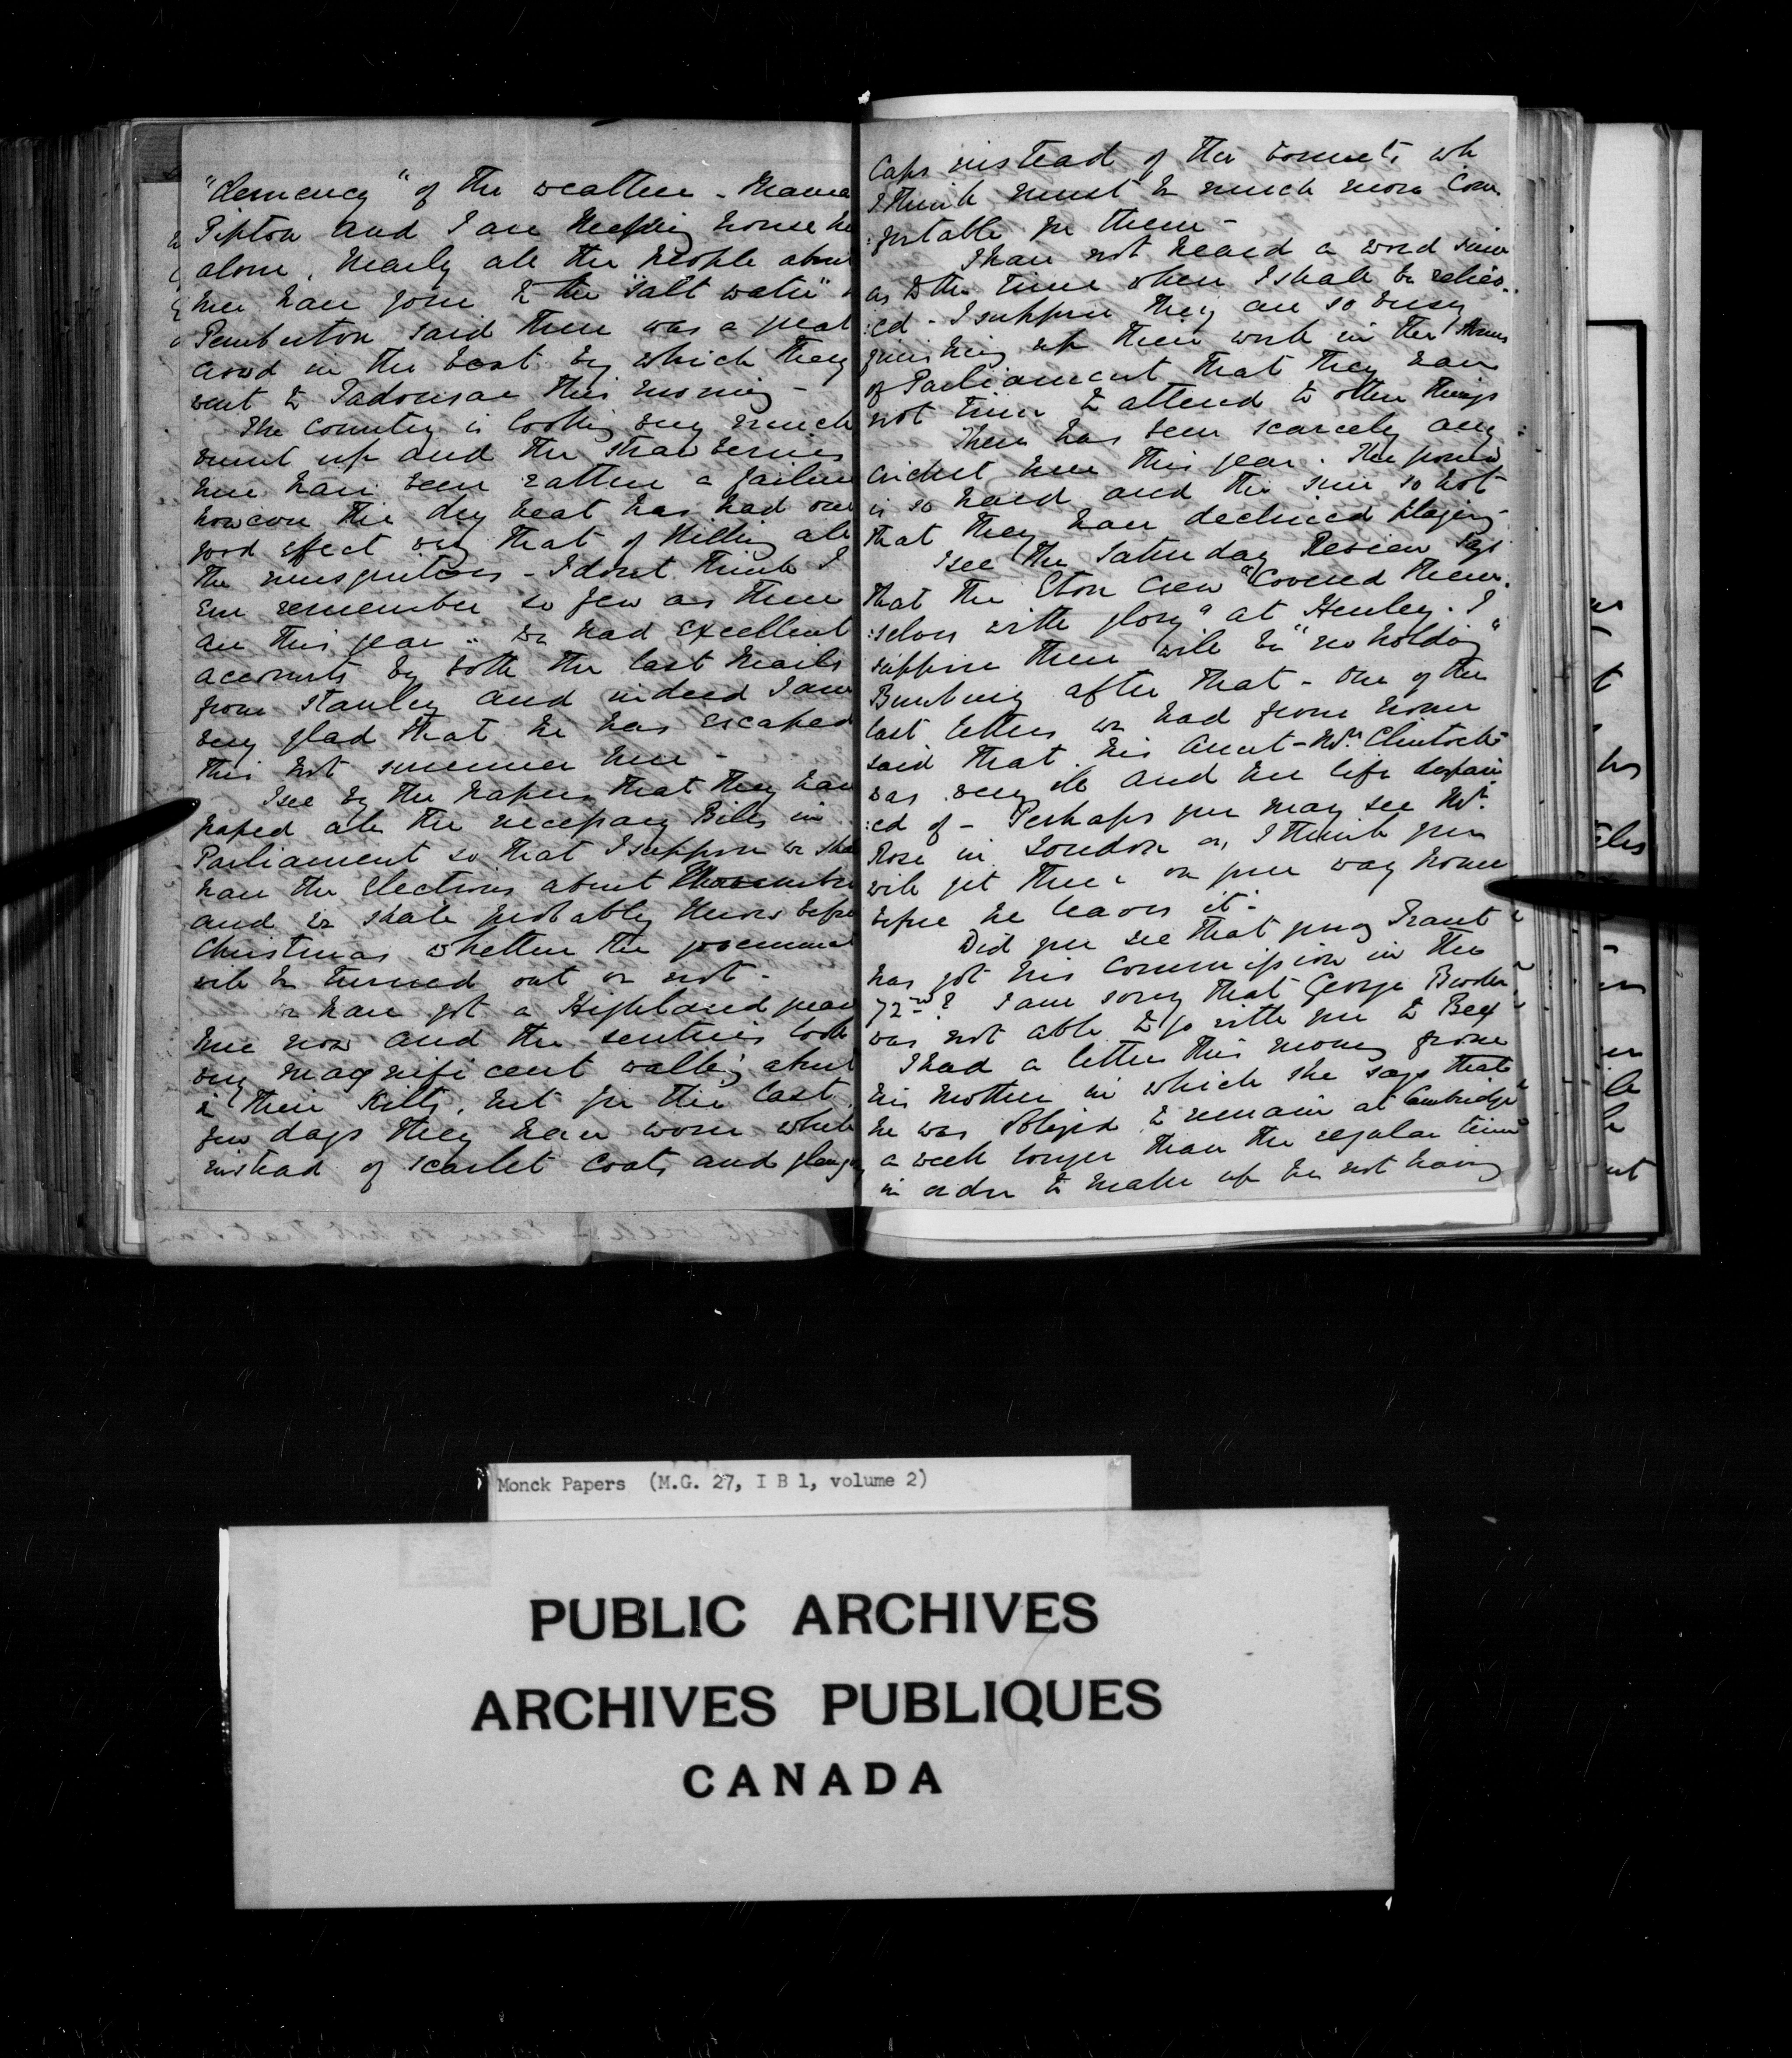 "clemency" of the weather - Mama
Tipton and I are keeping house he
alone. Nearly all the people about
here have gone to the "salt water"
Pemberton said there was a great
crowd in the boat by which they
went to Tadousac this morning -
The country is looking very much
burnt up and the strawberries
here have been rather a failure
however the dry heat has had one
good effect viz that of killing all
the musquitoes - I don't think I
ever remember so few as there
are this year. We had excellent
accounts by both the last mails
from Stanley and indeed I am
very glad that he has escaped
this hot summer here -
I see by the papers that they have
passed all the necessary Bills in
Parliament so that I suppose we sha
have the elections about November
and we shall probably know before
Christmas whether the government
will be turned out or not -
We have got a Highland guard
here now and the sentries look
very magnificent walking about
in their Kilts, but for the last
few days they have worn white
instead of scarlet coats and glengary
Caps instead of the bonnets wh
I think must be much more Com
:fortable for them -
I have not heard a word since
as to the time when I shall be reliev.
:ed - I suppose they are so busy
finishing up their work in the Houses
of Parliament that they have
not time to attend to other things
There has been scarcely any
cricket here this year. The ground
is so hard and the sun so hot
that they have declined playing -
I see the Saturday Review says
that the Eton Crew "Covered them.
:selves with glory" at Henley. I
suppose there will be "no holding"
Bunbury after that - One of the
last letters we had from home
said that his Aunt - Mrs. Clintock -
was very ill and her life despair
:ed of - Perhaps you may see Mr.
Rose in London as I think you
will get there on your way home
before he leaves it -
Did you see that young Grant
has got his Commission in the
72nd? I am sorry that George Brooke
was not able to go with you to Bex
I had a letter this morning from
his Mother in which she says that
he was obliged to remain at Cambridge
a week longer than the regular time
in order to make up for not having
Monck Papers (M.G. 27, I B 1, volume 2)
PUBLIC ARCHIVES
ARCHIVES PUBLIQUES
CANADA